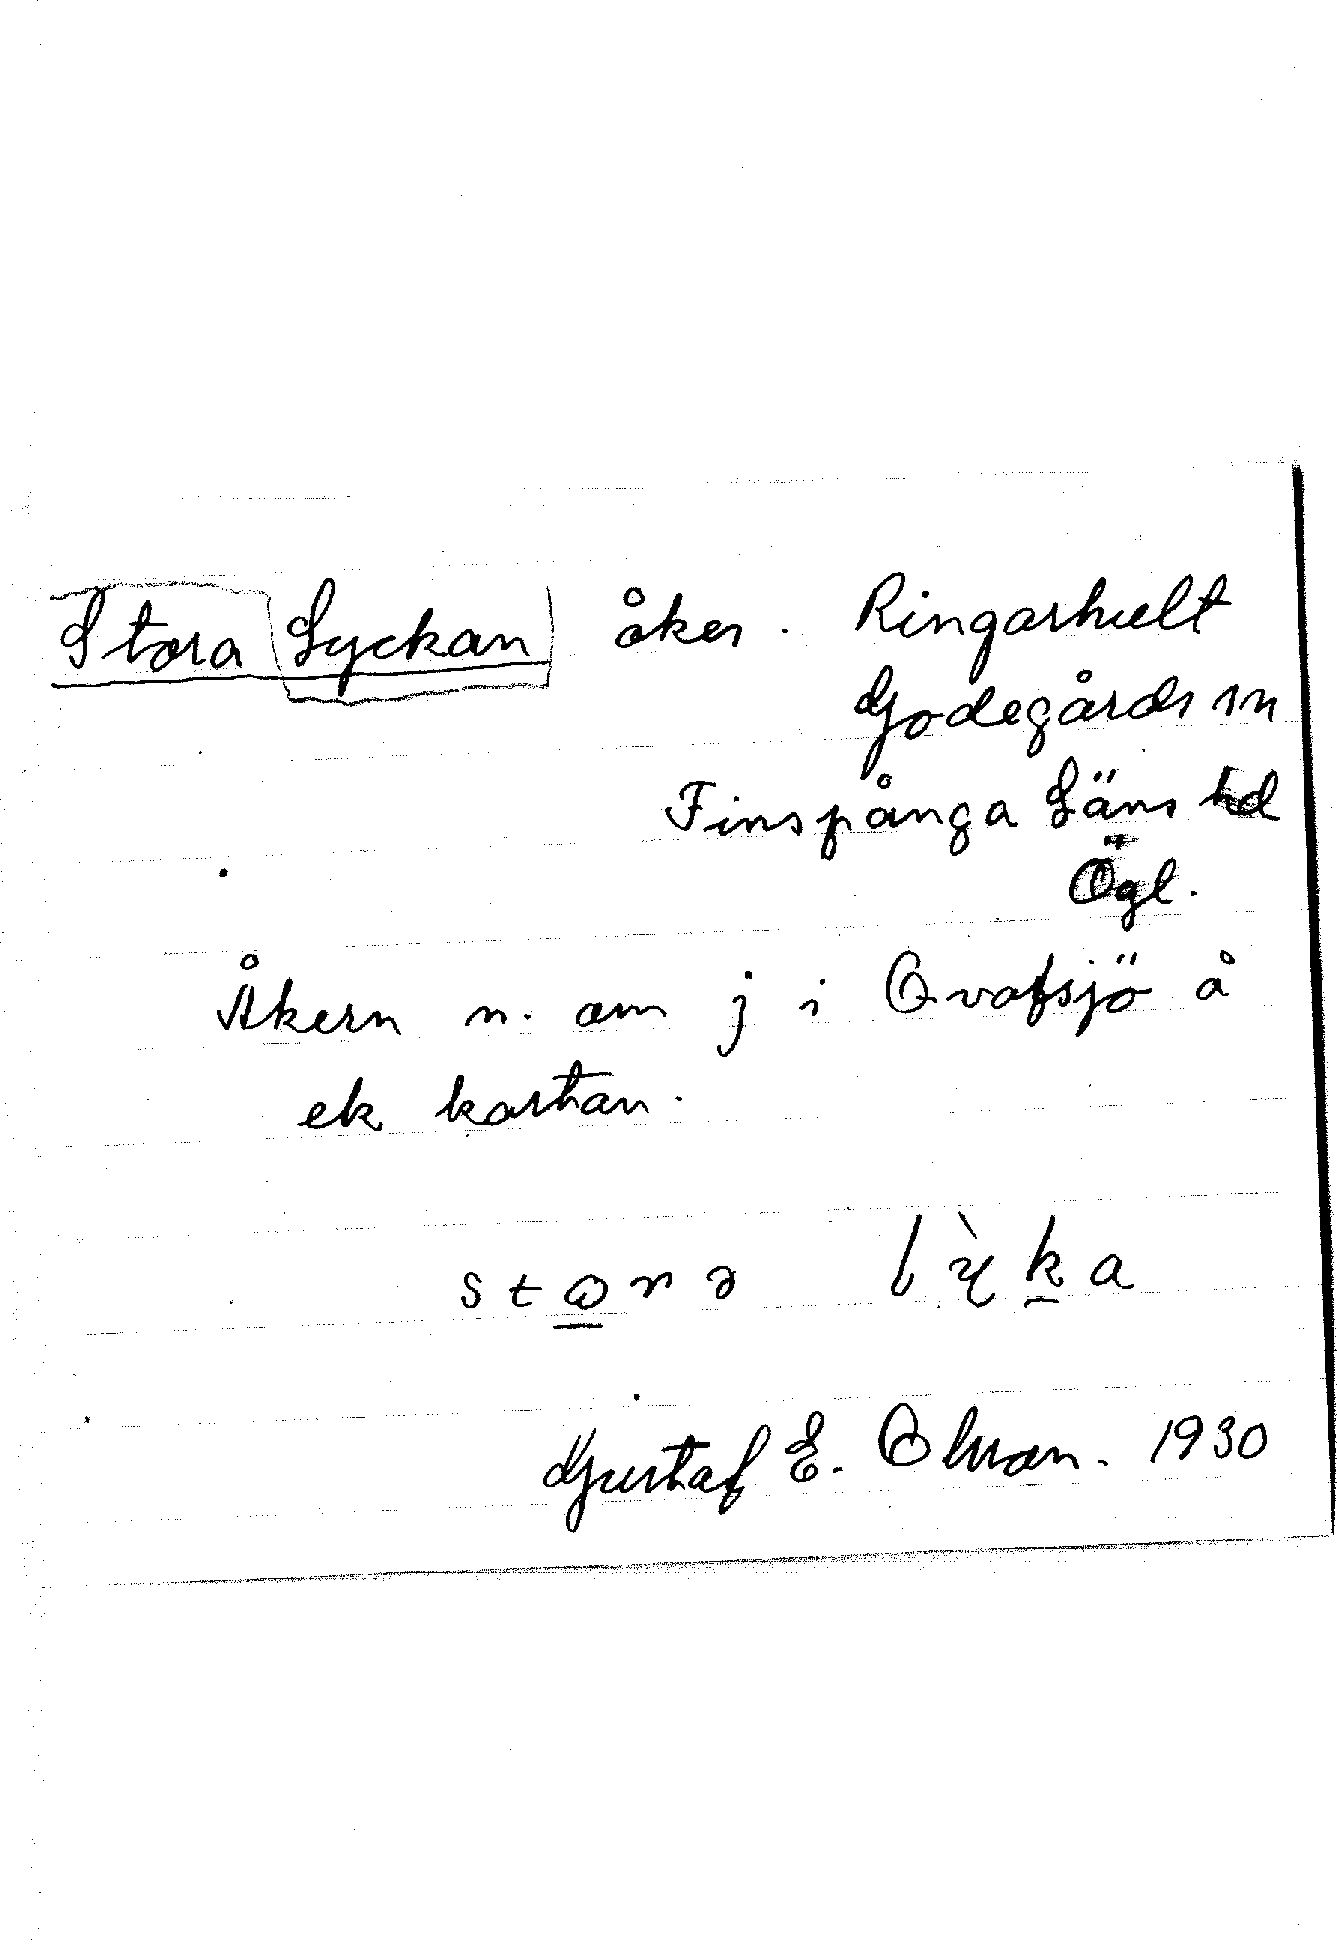 Stora Lyckan åker. Ringarhult
Godegårds sn
Finspånga Läns hd
Ögl.
Åkern n. om j i Qvafsjö å
ek kartan.
Gustaf E. Olson. 1930